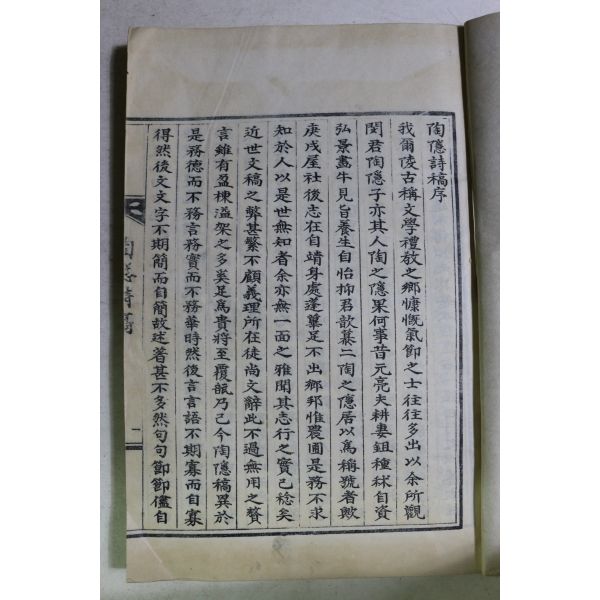 陶隱詩稿序
我爾陵古稱文學禮教之鄉慷慨氣節之士往往多出以余所觀
閔君陶隱子亦其人陶之隱果何事昔元亮夫耕妻鉏種秫自資
弘景畵牛見旨養生自怡抑君歆慕二陶之隱居以爲稱號者歟
庚戌屋社後志在自靖身處蓬蓽足不出鄕邦惟農圃是務不求
知於人以是世無知者余亦無一面之雅聞其志行之實已稔矣
近世文稿之弊甚繁不顧義理所在徒尚文辭此不過無用之贅
言雖有盈棟溢架之多奚足爲貴將至覆瓿乃已今陶隱稿異於
是務德而不務言務實而不務華時然後言言語不期寡而自寡
得然後文文字不期簡而自簡故述著甚不多然句句節節儘自
陶隱詩稿
一